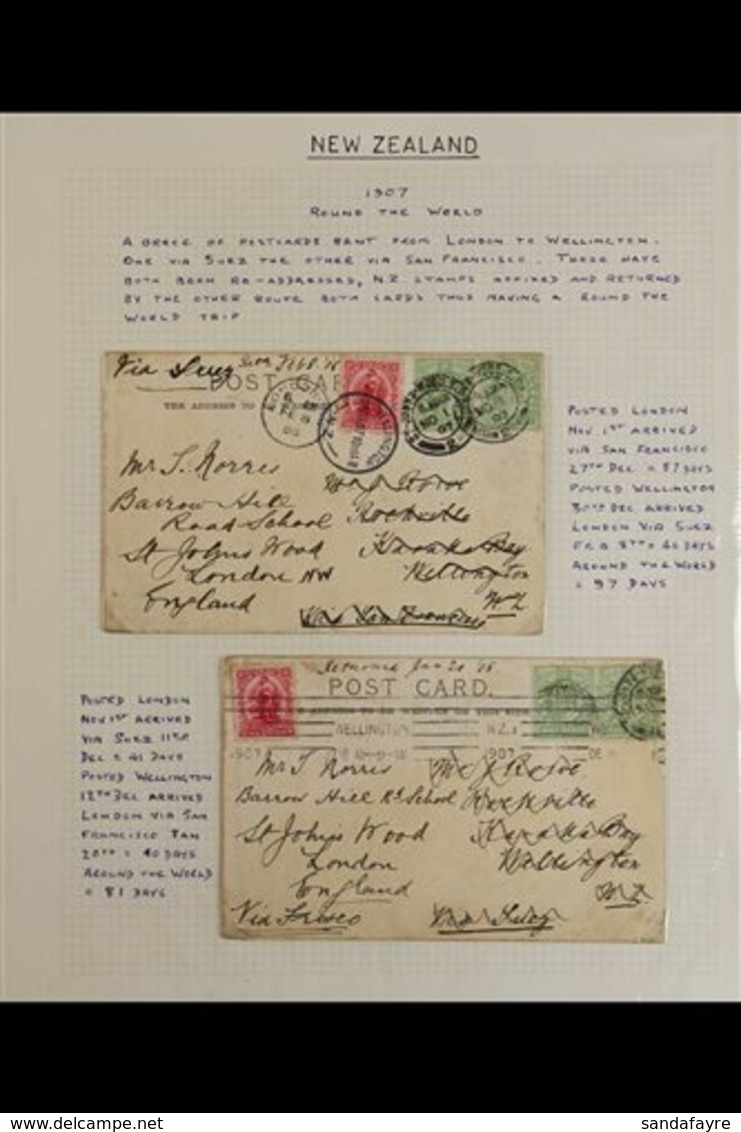 NEW ZEALAND
1907
ROUND THE WORLD
A BRACE OF POSTCARDS SENT FROM LONDON TO WELLINGTON.
ONE VIA SUEZ THE OTHER VIA SAN FRANCISCO. THESE HAVE
BOTH BEEN RE-ADDRESSED, N.Z. STAMPS AFFIXED AND RETURNED
BY THE OTHER ROUTE BOTH CARDS THUS MAKING A ROUND THE
WORLD TRIP
Via Suez
POST CARD
THE ADDRESS TO
Mr T. Norris
Barrow Hill
Road School
St Johns Wood
London NW
England
Rockville
Karaka Bay
Wellington
NZ
Via San Francisco
POSTED LONDON
NOV 1ST ARRIVED
VIA SAN FRANCISCO
27TH DEC = 57 DAYS
POSTED WELLINGTON
30TH DEC ARRIVED
LONDON VIA SUEZ
FEB 8TH = 40 DAYS
AROUND THE WORLD
= 97 DAYS
POSTED LONDON
NOV 1ST ARRIVED
VIA SUEZ 11TH
DEC = 41 DAYS
POSTED WELLINGTON
12TH DEC ARRIVED
LONDON VIA SAN
FRANCISCO JAN
20TH = 40 DAYS
AROUND THE WORLD
= 81 DAYS
POST CARD.
WELLINGTON N.Z.
1907 1907 DE
Mr T Norris
Barrow Hill Rd School
St John's Wood
London
England
Via Frisco
Rockville
Karaka Bay
Wellington
NZ
Via Suez
www.delcampe.net
sandafayre